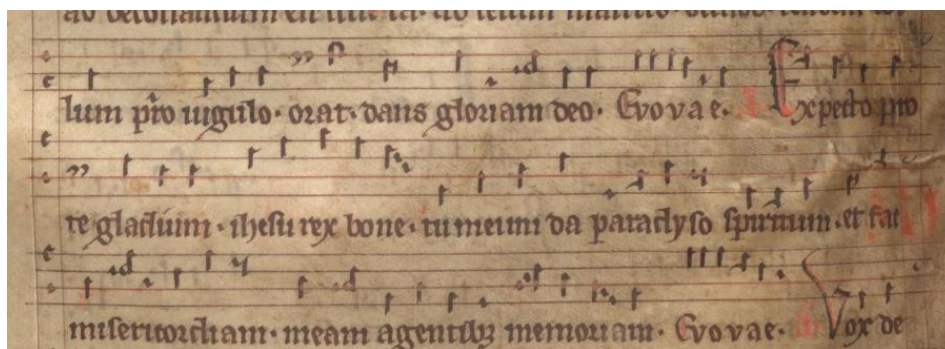 lum pro uigulo · orat · dans gloriam deo · Evovae · Expecto pro
te gladium · ihesu rex bone · tu meum da paraclyso spiritum · et fac
misericordiam · meam agentibz memoriam · Evovae · Vox de